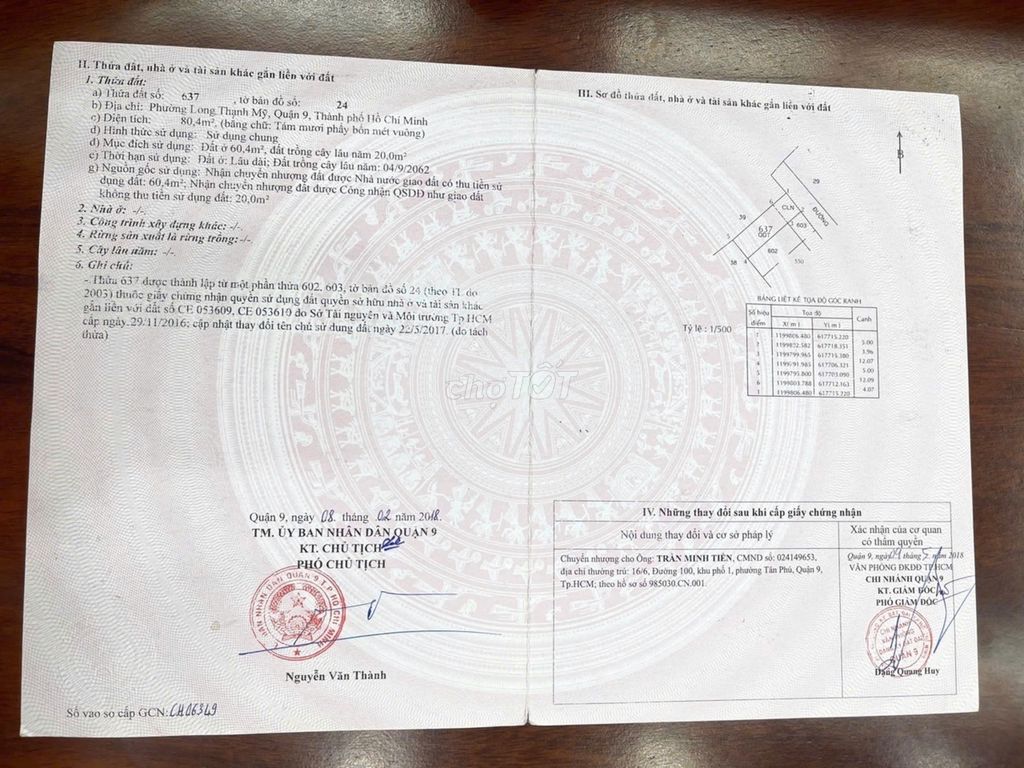 II. Thửa đất, nhà ở và tài sản khác gắn liền với đất
1. Thửa đất:
a) Thửa đất số: 637 , tờ bản đồ số: 24
b) Địa chỉ: Phường Long Thạnh Mỹ, Quận 9, Thành phố Hồ Chí Minh
c) Diện tích: 80,4m², (bằng chữ: Tám mươi phẩy bốn mét vuông)
d) Hình thức sử dụng: Sử dụng chung
đ) Mục đích sử dụng: Đất ở 60,4m², đất trồng cây lâu năm 20,0m²
e) Thời hạn sử dụng: Đất ở: Lâu dài; Đất trồng cây lâu năm: 04/9/2062
g) Nguồn gốc sử dụng: Nhận chuyển nhượng đất được Nhà nước giao đất có thu tiền sử
dụng đất: 60,4m²; Nhận chuyển nhượng đất được Công nhận QSDĐ như giao đất
không thu tiền sử dụng đất: 20,0m²
2. Nhà ở: -/-.
3. Công trình xây dựng khác: -/-.
4. Rừng sản xuất là rừng trồng:-/-.
5. Cây lâu năm: -/-.
6. Ghi chú:
- Thửa 637 được thành lập từ một phần thửa 602, 603, tờ bản đồ số 24 (theo TL đo
2003) thuộc giấy chứng nhận quyền sử dụng đất quyền sở hữu nhà ở và tài sản khác
gắn liền với đất số CE 053609, CE 053610 do Sở Tài nguyên và Môi trường Tp HCM
cấp ngày 29/11/2016; cập nhật thay đổi tên chủ sử dụng đất ngày 22/5/2017. (do tách
thửa)
Quận 9, ngày 08 tháng 02 năm 2018
TM. ỦY BAN NHÂN DÂN QUẬN 9
KT. CHỦ TỊCH
PHÓ CHỦ TỊCH
Nguyễn Văn Thành
Số vào sổ cấp GCN: CH06349
III. Sơ đồ thửa đất, nhà ở và tài sản khác gắn liền với đất
B
29
ĐƯỜNG
1
6 CLN 2
39 637 3 603
ODT
602 550
38 5 4
Tỷ lệ : 1/500
BẢNG LIỆT KÊ TỌA ĐỘ GÓC RANH
Số hiệu điểm Tọa độ Cạnh
X( m ) Y( m )
1 1199806.480 617715.220
5.00
2 1199802.582 617718.351
3.96
3 1199799.965 617715.380
12.07
4 1199791.985 617706.321
5.00
5 1199795.800 617703.090
12.09
6 1199803.788 617712.163
4.07
1 1199806.480 617715.220
IV. Những thay đổi sau khi cấp giấy chứng nhận
Nội dung thay đổi và cơ sở pháp lý
Xác nhận của cơ quan
có thẩm quyền
Chuyển nhượng cho Ông: TRẦN MINH TIẾN, CMND số: 024149653,
địa chỉ thường trú: 16/6, Đường 100, khu phố 1, phường Tân Phú, Quận 9,
Tp.HCM; theo hồ sơ số 985030.CN.001.
Quận 9, ngày tháng năm 2018
VĂN PHÒNG ĐKĐĐ TP.HCM
CHI NHÁNH QUẬN 9
KT. GIÁM ĐỐC
PHÓ GIÁM ĐỐC
CHI NHÁNH
VĂN PHÒNG
ĐĂNG KÝ ĐẤT ĐAI
QUẬN 9
Đặng Quang Huy
choTỐT